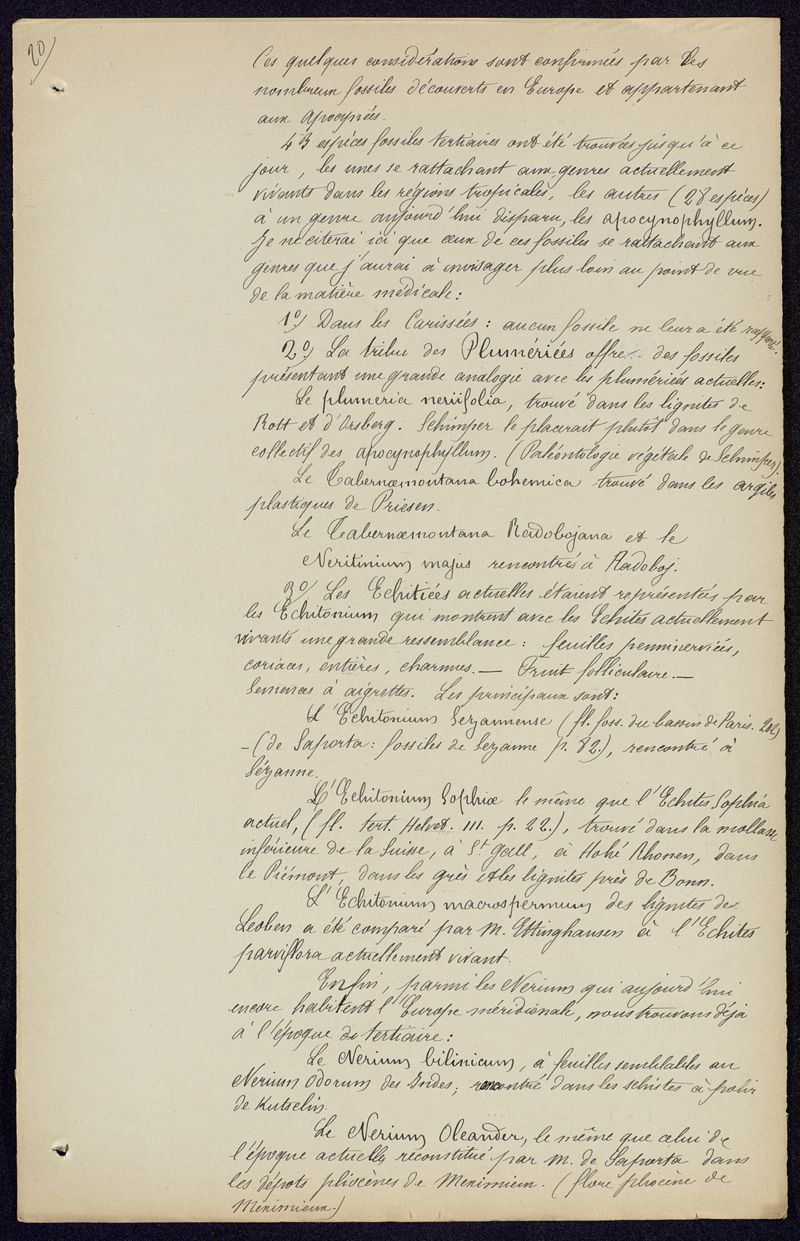 20/
Ces quelques considérations sont confirmées par des
nombreux fossiles découverts en Europe et appartenant
aux Apocynées.
43 espèces fossiles tertiaires ont été trouvées jusqu'à ce
jour, les unes se rattachant aux genres actuellement
vivants dans les régions tropicales, les autres (28 espèces)
à un genre aujourd'hui disparu, les apocynophyllum.
Je ne citerai ici que ceux de ces fossiles se rattachant aux
genres que j'aurai à envisager plus loin au point de vue
de la matière médicale:
1º/ Dans les Carissées: aucun fossile ne leur a été rapporté.
2º/ La tribu des Plumériées offre des fossiles
présentant une grande analogie avec les plumériées actuelles:
Le plumeria neriifolia, trouvé dans les lignites de
Rott et d'Orsberg. Schimper le placerait plutôt dans le genre
collectif des apocynophyllum. (Paléontologie végétale de Schimper).
Le Tabernæmontana bohemica trouvé dans les argiles
plastiques de Priesen.
Le Tabernæmontana Radobojana et le
Neritinium majus rencontrés à Radoboj.
3º/ Les Echitées actuelles étaient représentées par
les Echitonium qui montrent avec les Echites actuellement
vivants une grande ressemblance: feuilles penninerviées,
coriaces, entières, charnues. — Fruit folliculaire. —
Semences à aigrettes. Les principaux sont:
L'Echitonium Sezannense (fl. foss. du bassin de Paris.
— (de Saporta: fossiles de Sezanne p. 82.), rencontré à
Sézanne.
L'Echitonium Sophiæ le même que l'Echites Sophia
actuel, (fl. tert. Helvet. III. p. 22.), trouvé dans la mollasse
inférieure de la Suisse, à St Gall, à Hohé Rhonen, dans
le Piémont, dans les grès et les lignites près de Bonn.
L'Echitonium macrospermum des lignites de
Leoben a été comparé par M. Ettinghausen à l'Echites
parviflora actuellement vivant.
Enfin, parmi les Nerium qui aujourd'hui
encore habitent l'Europe méridionale, nous trouvons déjà
à l'époque du tertiaire:
Le Nerium bilinicum, à feuilles semblables au
Nerium Odorum des Indes, rencontré dans les schistes à polir
de Kutschlin
Le Nerium Oleander, le même que celui de
l'époque actuelle, reconstitué par M. de Saporta dans
les dépôts pliocènes de Meximieux. (flore pliocène de
Méximieux.)